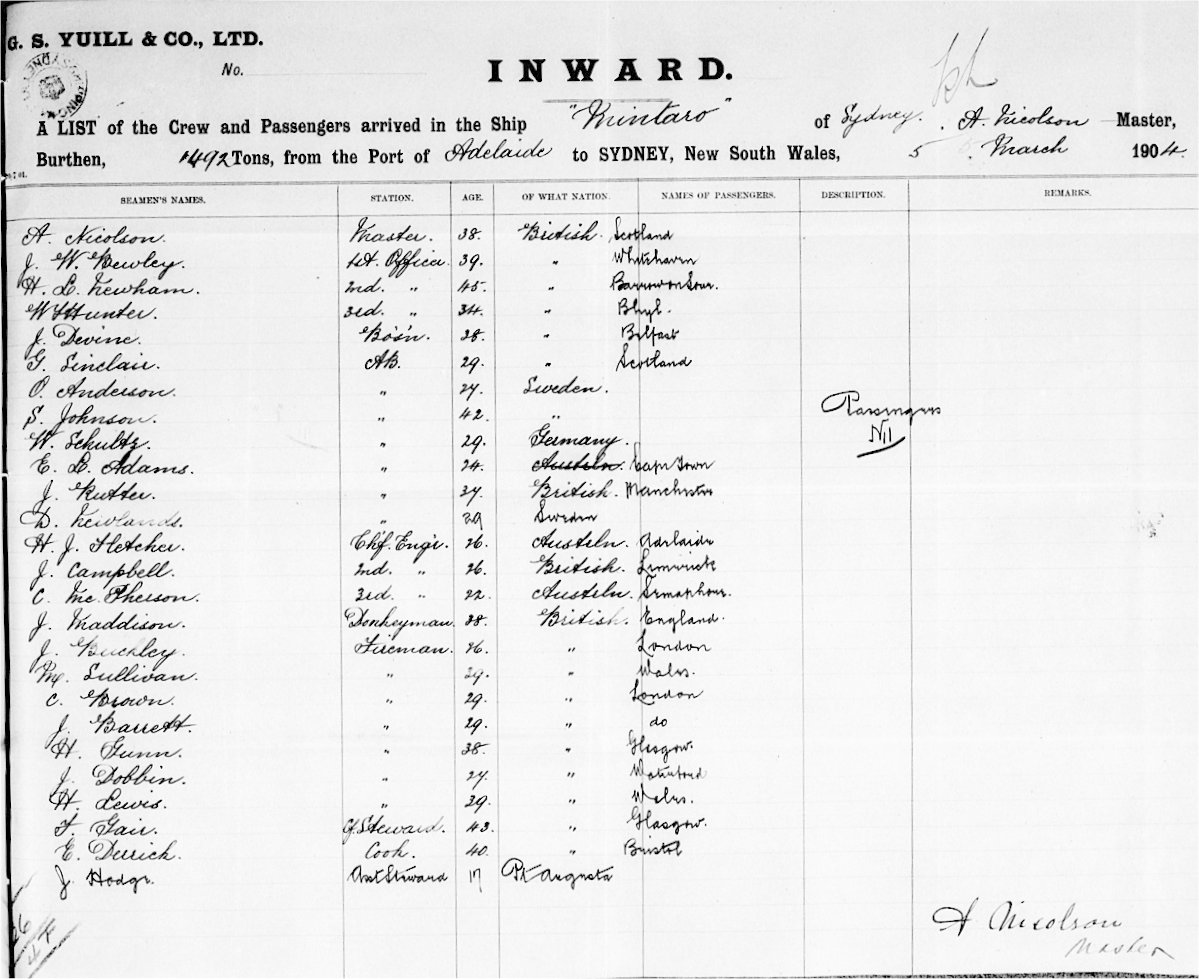 G. S. YUILL & CO., LTD.
No.
INWARD.
A LIST of the Crew and Passengers arrived in the Ship "Mintaro" of Sydney. A. Nicolson Master,
Burthen, 1492 Tons, from the Port of Adelaide to SYDNEY, New South Wales, 5 March 1904.
SEAMEN'S NAMES. STATION. AGE. OF WHAT NATION. NAMES OF PASSENGERS. DESCRIPTION. REMARKS.
A. Nicolson. Master. 38. British. Scotland
J. W. Bewley. 1st. Officer. 39. " Whitehaven
H. L. Newham. 2nd. " 45. " Barrow on
W S Hunter. 3rd. " 34. "
J. Devine. Bos'n. 38. " Belfast
G. Sinclair. AB. 29. " Scotland
O. Anderson. " 27. Sweden.
S. Johnson. " 42. "
W. Schultz. " 29. Germany.
E. L. Adams. " 24. Austrln. Cape Town
J. Rutter. " 37. British. Manchester
D. Newlands. " 29 Sweden
H. J. Fletcher. Chf. Engr. 26. Austrln. Adelaide
J. Campbell. 2nd. " 26. British. Limerick
C. Mc.Pherson. 3rd. " 22. Austrln. Semaphore.
J. Maddison. Donkeyman. 38. British. England.
J. Buckley. Fireman. 26. " London
M. Sullivan. " 29. " Wales.
C. Brown. " 29. " London
J. Barrett. " 29. " do
H. Gunn. " 38. " Glasgow.
J. Dobbin. " 27. " Waterford
H. Lewis. " 39. " Wales.
F. Gair. Cf. Steward. 43. " Glasgow.
E. Derrick. Cook. 40. " Bristol
J. Hodge. Ast Steward 17 Pt Augusta
Passengers
Nil
26
A Nicolson
Master